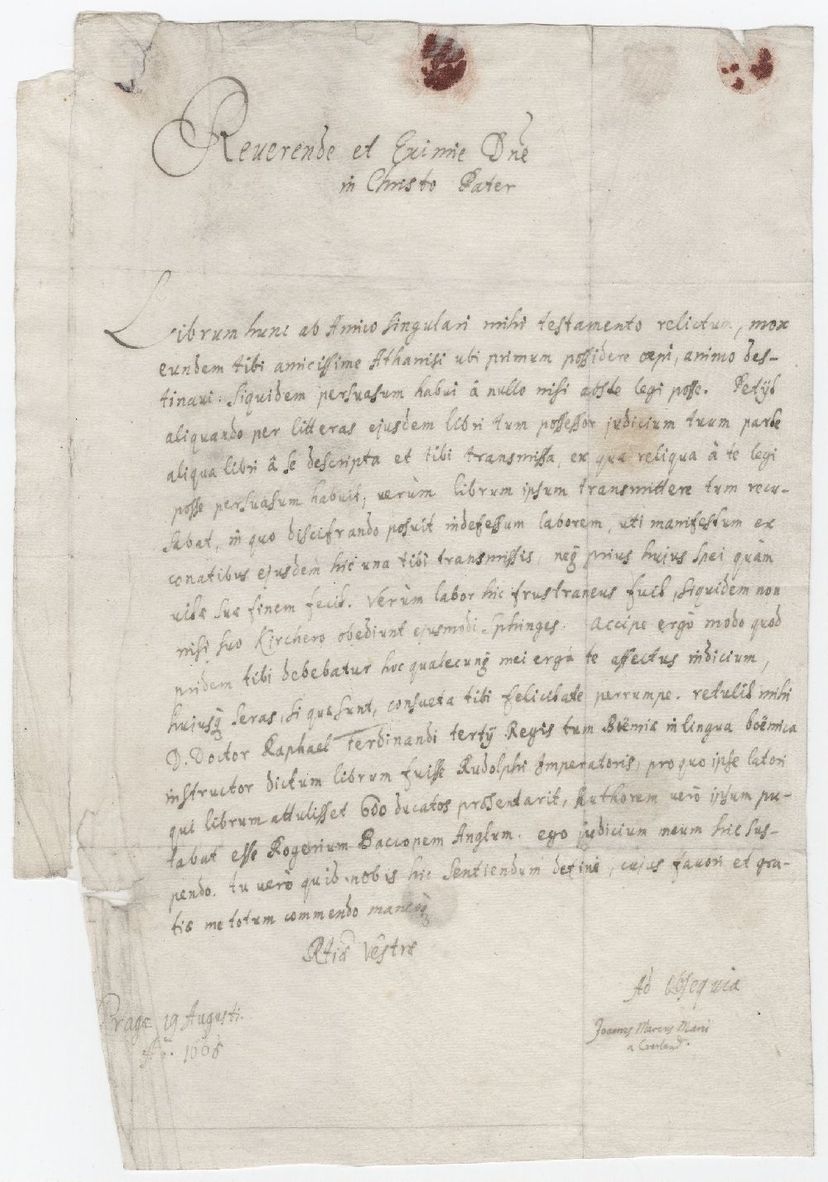 Reuerende et Eximie Dñe
in Christo Pater
Librum hunc ab Amico singulari mihi testamento relictum, mox
eundem tibi amicissime Athanisi ubi primum possidere cæpi, animo des-
tinaui: siquidem persuasum habui â nullo nisi abs te legi posse. Petijt
aliquando per litteras ejusdem libri tum possessor judicium tuum parte
aliqua libri â se descripta et tibi transmissa, ex qua reliqua â te legi
posse persuasum habuit; uerùm librum ipsum transmittere tum recu-
sabat, in quo discifrando posuit indefessum laborem, uti manifestum ex
conatibus ejusdem hic una tibi transmissis, neq prius huius spei quàm
uitæ suæ finem fecit. Verùm labor hic frustraneus fuit, siquidem non
nisi suo Kirchero obediunt ejusmodi sphinges. Accipe ergò modo quod
pridem tibi debebatur hoc qualecunq mei ergà te affectus indicium,
huiusq seras, si quæ sunt, consueta tibi felicitate perrumpe. retulit mihi
D. Doctor Raphael Ferdinandi tertij Regis tum Boëmiæ in lingua boëmica
instructor dictum librum fuisse Rudolphi Imperatoris, pro quo ipse latori
qui librum attulisset 600 ducatos præsentarit, Authorem uerò ipsum pu-
tabat esse Rogerium Bacconem Anglum. ego judicium meum hic sus-
pendo. tu uerò quid nobis hic sentiendum defini, cujus fauori et gra-
tiæ me totum commendo maneoq
Rtiæ Vestræ
Ad Obsequia
Joannes Marcus Marci
a Cronland.
Pragæ 19 Augusti.
Ao. 1666